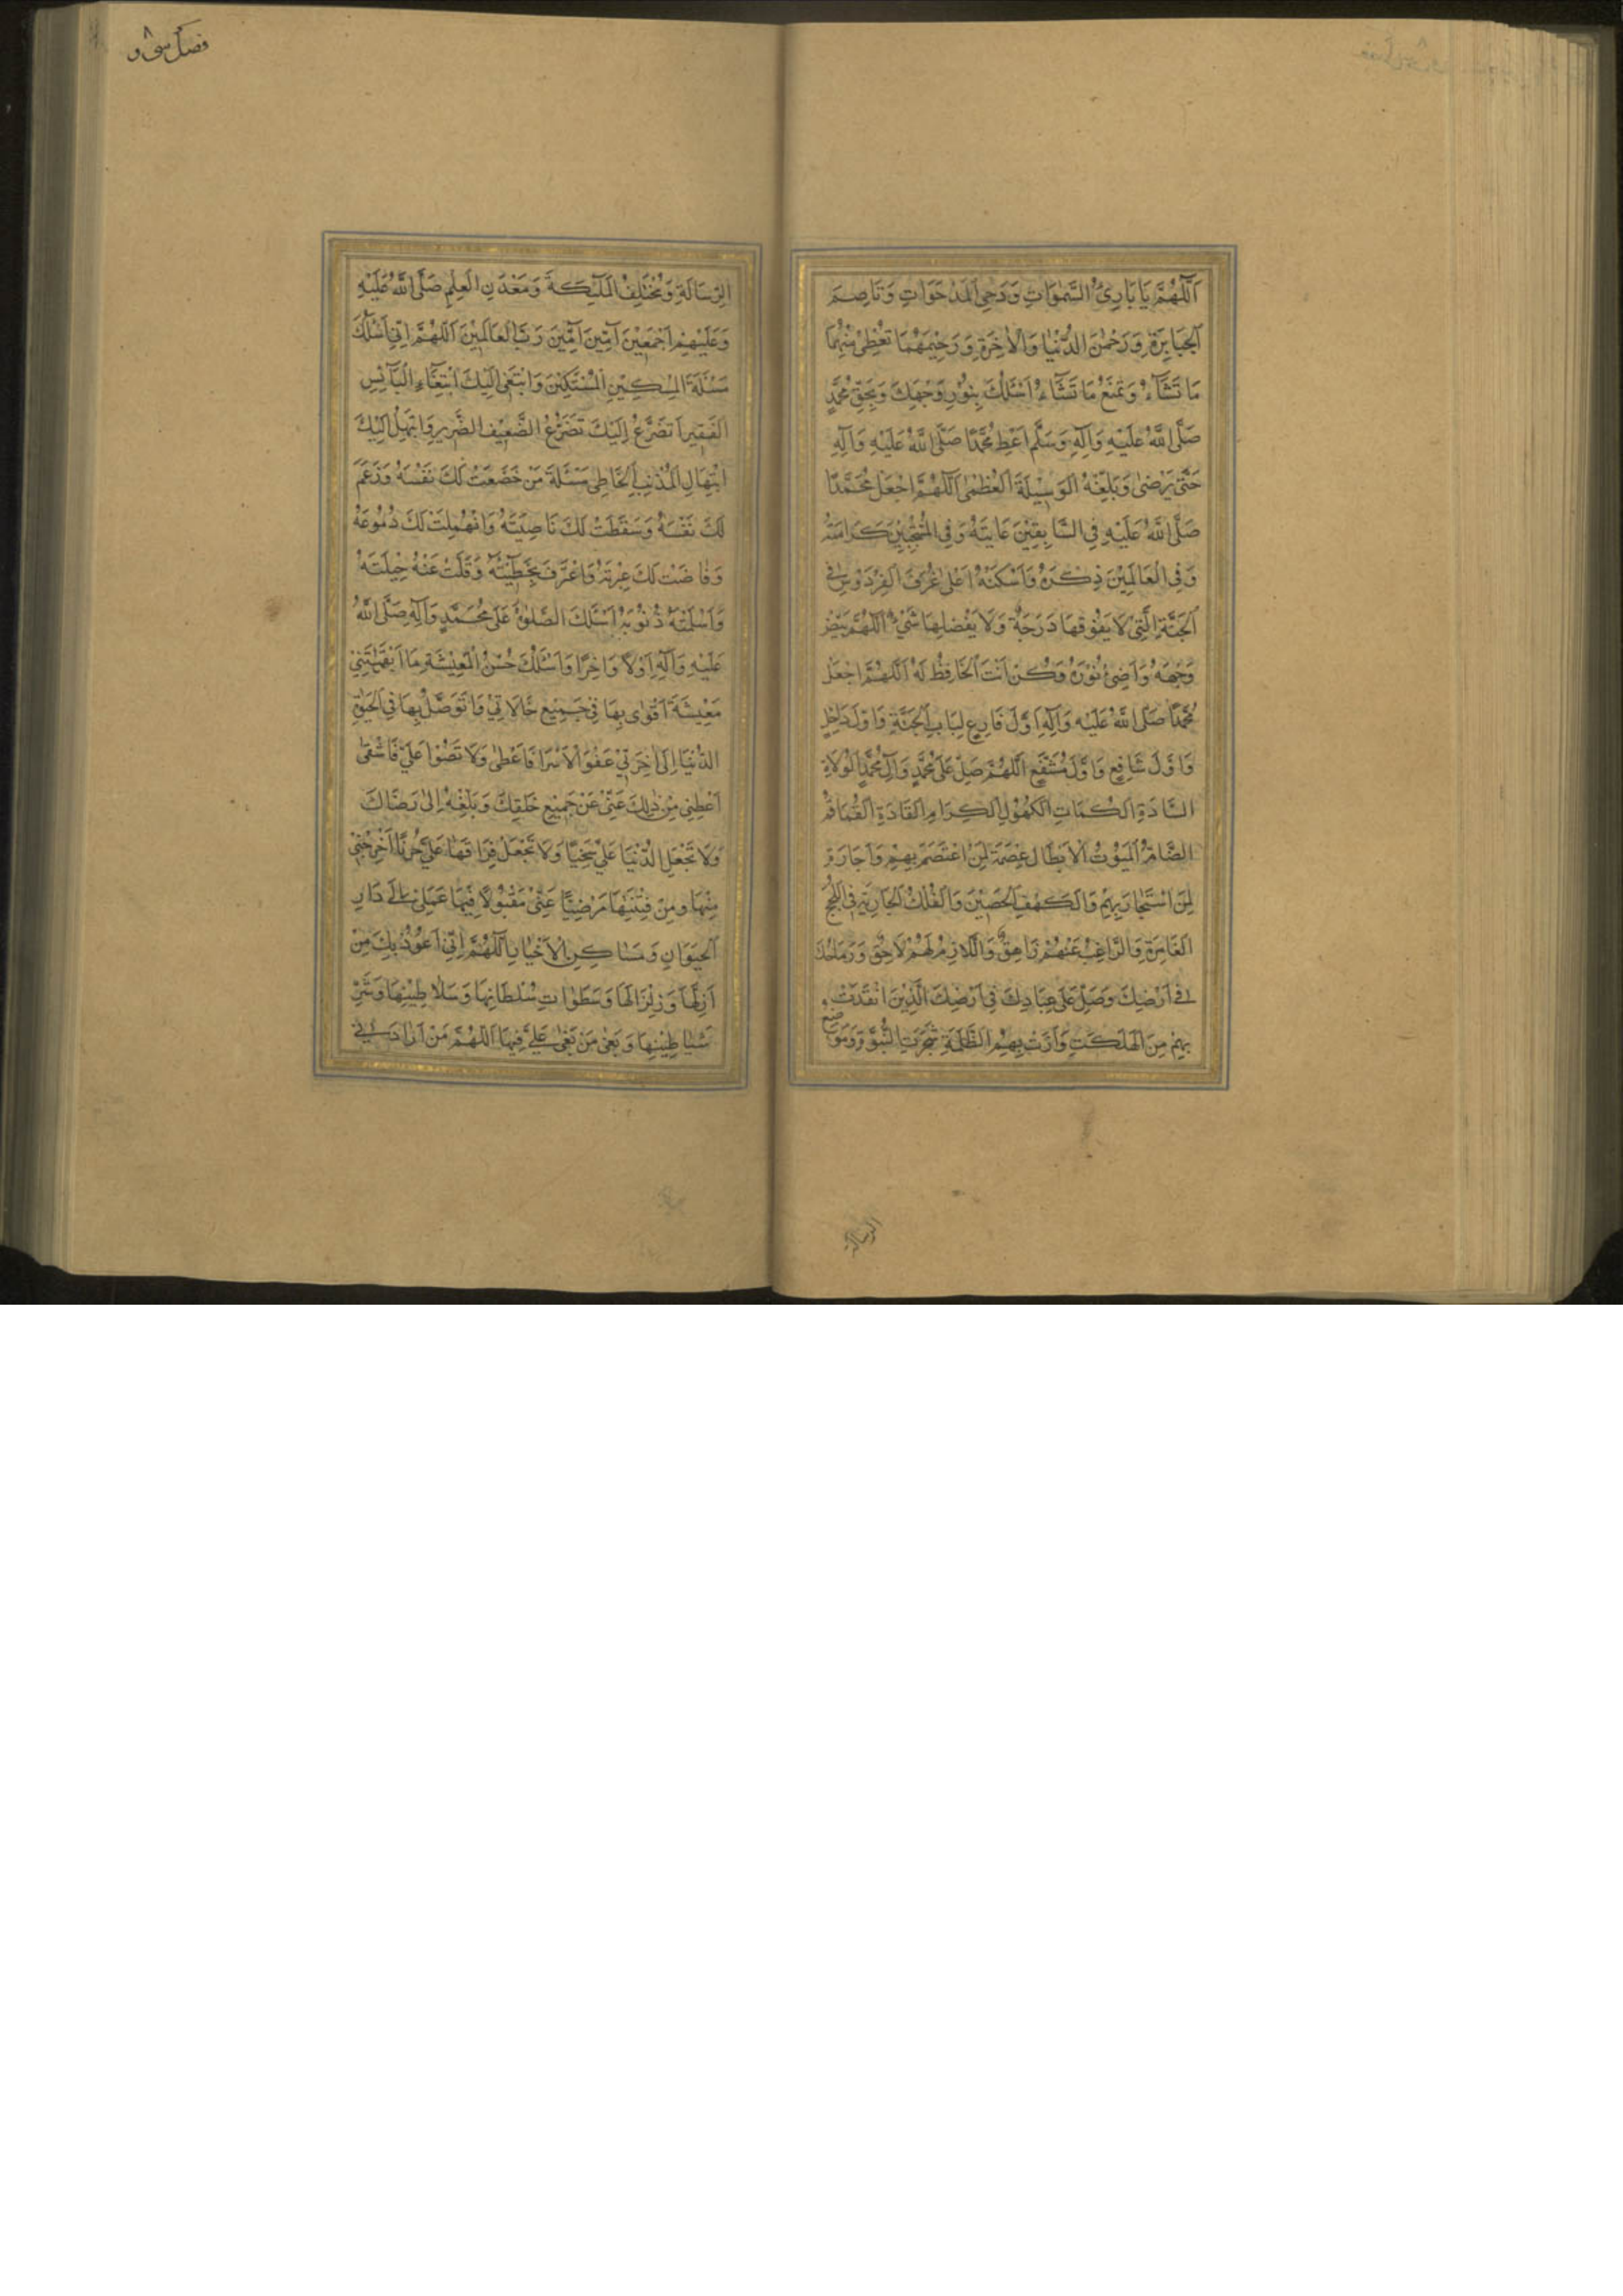 اَللّٰهُمَّ يَا بَارِئَ السَّمٰوَاتِ وَدَحِىَ الْمَدْحَوَاتِ وَقَاصِمَ
الْجَبَابِرَةِ وَرَحْمٰنَ الدُّنْيَا وَالْاٰخِرَةِ وَرَحِيْمَهُمَا تُعْطِىْ مِنْهُمَا
مَا تَشَآءُ وَتَمْنَعُ مَا تَشَآءُ اَسْئَلُكَ بِنُوْرِ وَجْهِكَ وَبِحَقِّ مُحَمَّدٍ
صَلَّى اللّٰهُ عَلَيْهِ وَآلِهِ وَسَلَّمَ اَعْطِ مُحَمَّدًا صَلَّى اللّٰهُ عَلَيْهِ وَآلِهِ
حَتّٰى يَرْضٰى وَبَلِّغْهُ الْوَسِيْلَةَ الْعُظْمٰى اَللّٰهُمَّ اجْعَلْ مُحَمَّدًا
صَلَّى اللّٰهُ عَلَيْهِ فِى السَّابِقِيْنَ غَايَتَهُ وَفِى الْمُنْتَجَبِيْنَ كَرَامَتَهُ
وَفِى الْعَالَمِيْنَ ذِكْرَهُ وَاَسْكِنْهُ اَعْلٰى غُرَفِ الْفِرْدَوْسِ فِى
الْجَنَّةِ الَّتِىْ لَا يَفُوْقُهَا دَرَجَةٌ وَلَا يَفْضُلُهَا شَىْءٌ اَللّٰهُمَّ بَيِّضْ
وَجْهَهُ وَاَضِئْ نُوْرَهُ وَكُنْ اَنْتَ الْحَافِظُ لَهُ اَللّٰهُمَّ اجْعَلْ
مُحَمَّدًا صَلَّى اللّٰهُ عَلَيْهِ وَآلِهِ اَوَّلَ قَارِعٍ لِبَابِ الْجَنَّةِ وَاَوَّلَ دَاخِلٍ
وَاَوَّلَ شَافِعٍ وَاَوَّلَ مُشَفَّعٍ اَللّٰهُمَّ صَلِّ عَلٰى مُحَمَّدٍ وَآلِ مُحَمَّدٍ الْوُلَاةِ
السَّادَةِ الْكُمَاتِ الْكُهُوْلِ الْكِرَامِ الْقَادَةِ الْقُمَاقِمِ
الضِّخَامِ اللُّيُوْثِ الْاَبْطَالِ عِصْمَةً لِمَنِ اعْتَصَمَ بِهِمْ وَاِجَارَةً
لِمَنِ اسْتَجَارَ بِهِمْ وَالْكَهْفِ الْحَصِيْنِ وَالْفُلْكِ الْجَارِيَةِ فِى اللُّجَجِ
الْغَامِرَةِ وَالرَّاغِبُ عَنْهُمْ زَاهِقٌ وَاللَّازِمُ لَهُمْ لَاحِقٌ وَرِمَاحُكَ
فِى اَرْضِكَ وَصَلِّ عَلٰى عِبَادِكَ فِى اَرْضِكَ الَّذِيْنَ انْقَذْتَ
بِهِمْ مِنَ الْهَلَكَةِ وَاَنَرْتَ بِهِمُ الظُّلْمَةَ شَجَرَةِ النُّبُوَّةِ وَمَوْضِعِ
الرسالة
فصل سى و ٨
الرِّسَالَةِ وَمُخْتَلَفِ الْمَلٰٓئِكَةِ وَمَعْدَنِ الْعِلْمِ صَلَّى اللّٰهُ عَلَيْهِ
وَعَلَيْهِمْ اَجْمَعِيْنَ آمِيْنَ آمِيْنَ رَبَّ الْعَالَمِيْنَ اَللّٰهُمَّ اِنِّى اَسْئَلُكَ
مَسْئَلَةَ الْمِسْكِيْنِ الْمُسْتَكِيْنِ وَابْتَغِى اِلَيْكَ ابْتِغَآءِ الْبَآئِسِ
الْفَقِيْرِ اَتَضَرَّعُ اِلَيْكَ تَضَرُّعَ الضَّعِيْفِ الضَّرِيْرِ وَابْتَهِلُ اِلَيْكَ
ابْتِهَالَ الْمُذْنِبِ الْخَاطِئِ مَسْئَلَةَ مَنْ خَضَعَتْ لَكَ نَفْسُهُ وَرَغِمَ
لَكَ نَفْسَهُ وَسَقَطَتْ لَكَ نَاصِيَتُهُ وَانْهَمَلَتْ لَكَ دُمُوعُهُ
وَفَاضَتْ لَكَ عَبْرَتُهُ وَاعْتَرَفَ بِخَطِيْئَتِهِ وَقَلَّتْ عَنْهُ حِيْلَتُهُ
وَاَسْلَمَتْهُ ذُنُوْبُهُ اَسْئَلُكَ الصَّلٰوةَ عَلٰى مُحَمَّدٍ وَآلِهِ صَلَّى اللّٰهُ
عَلَيْهِ وَآلِهِ اَوَّلًا وَاٰخِرًا وَاَسْئَلُكَ حُسْنَ الْمَعِيْشَةِ مَا اَبْقَيْتَنِىْ
مَعِيْشَةً اَقْوٰى بِهَا فِىْ جَمِيْعِ حَالَاتِىْ وَاَتَوَصَّلُ بِهَا فِى الْحَيٰوةِ
الدُّنْيَا اِلٰى اٰخِرَتِىْ عَفْوًا لَا تُتْرِفْنِى فَاَطْغٰى وَلَا تُقَتِّرْ عَلَىَّ فَاَشْقٰى
اَعْطِنِى مِنْ ذٰلِكَ غِنًى عَنْ جَمِيْعِ خَلْقِكَ وَبُلْغَةً اِلٰى رِضَاكَ
وَلَا تَجْعَلِ الدُّنْيَا عَلَىَّ سِجْنًا وَلَا تَجْعَلْ فِرَاقَهَا عَلَىَّ حُزْنًا اَخْرِجْنِىْ
مِنْهَا وَمِنْ فِتْنَتِهَا مَرْضِيًّا عَنِّىْ مَقْبُوْلًا فِيْهَا عَمَلِىْ اِلٰى دَارِ
الْحَيَوَانِ وَمَسَاكِنِ الْاَخْيَارِ اَللّٰهُمَّ اِنِّى اَعُوْذُ بِكَ مِنْ
اَزْلِهَا وَزِلْزَالِهَا وَسَطَوَاتِ سُلْطَانِهَا وَسَلَاطِيْنِهَا وَشَرِّ
شَيَاطِيْنِهَا وَبَغْىِ مَنْ بَغٰى عَلَىَّ فِيْهَا اَللّٰهُمَّ مَنْ اَرَادَنِىْ